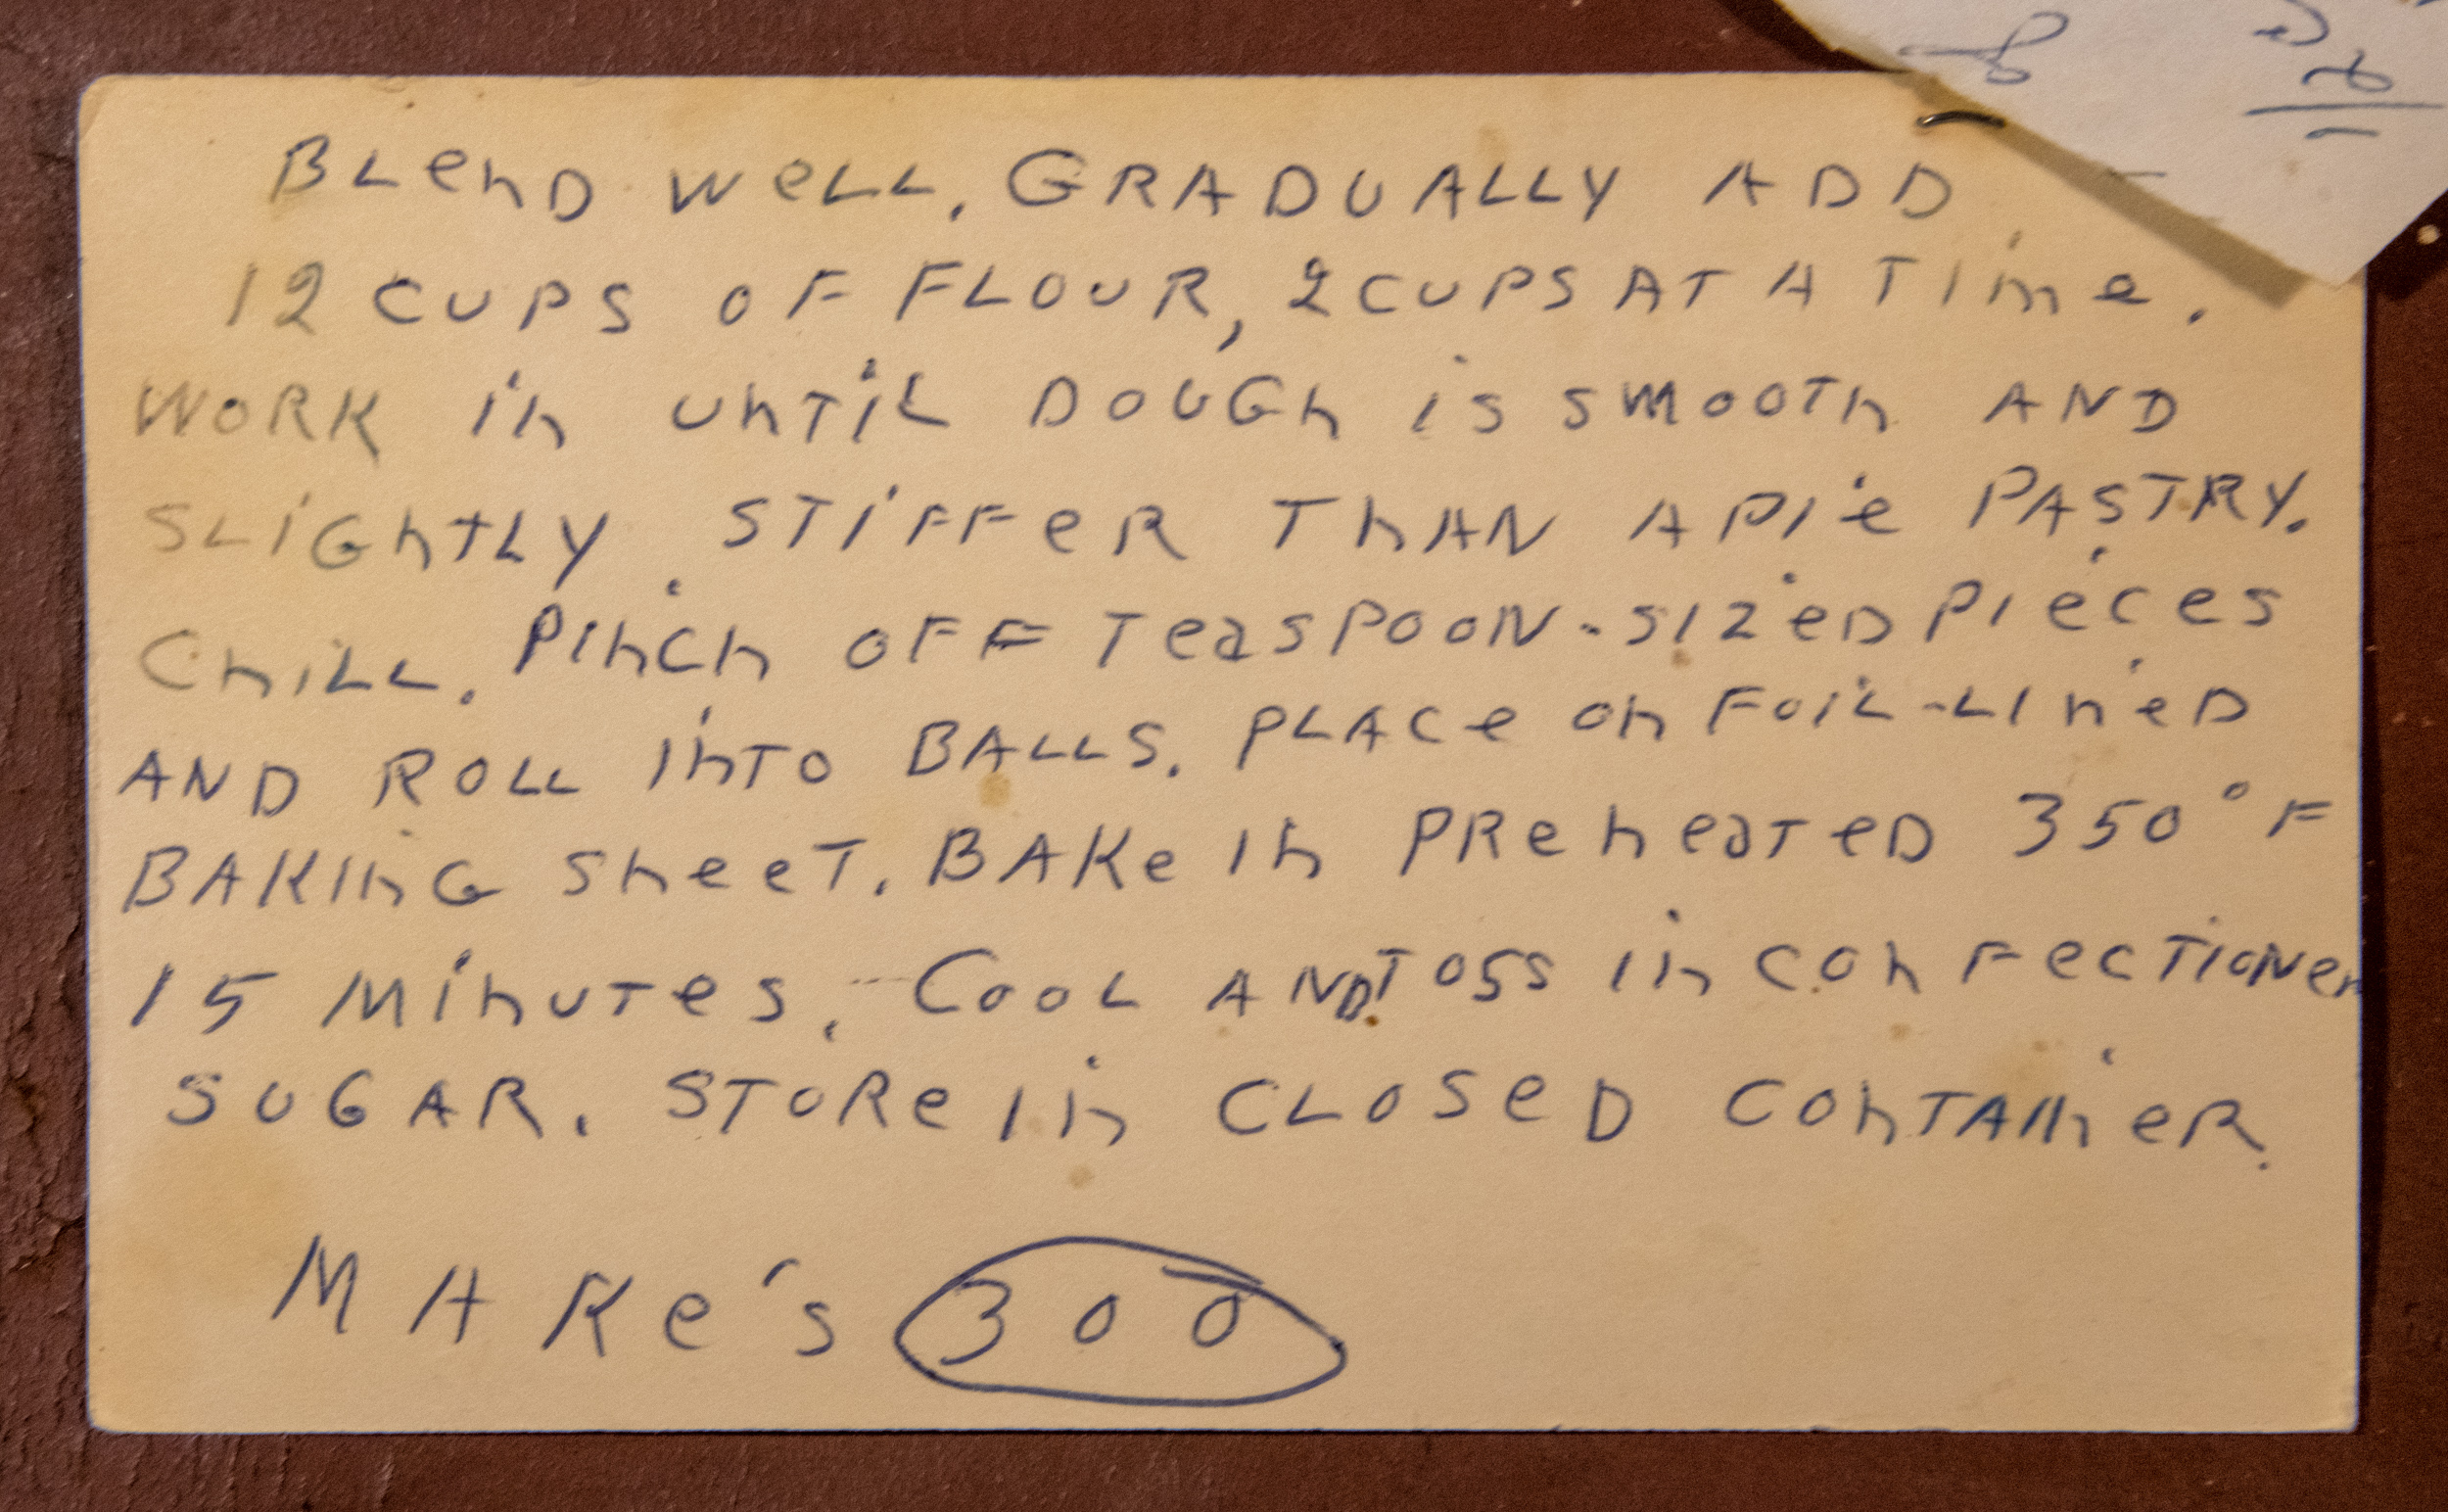 BLenD WeLL. GRADUALLY ADD
12 CUPS OF FLOUR, 2 CUPS AT A Time.
WORK in UnTiL DOUGh is SMOOTh AND
SLiGhTLY STiFFeR ThAN A Pie PASTRY.
ChiLL. Pinch OFF TeaSPOON-SizeD Pieces
AND ROLL inTO BALLS. PLACe On FOiL-LineD
BAKinG SheeT. BAKe in PReheaTeD 350°F
15 MinuTes. COOL AND TOSS in COnFecTiONer
SUGAR. STORe in CLOSeD COnTAineR.
MAKe's 300